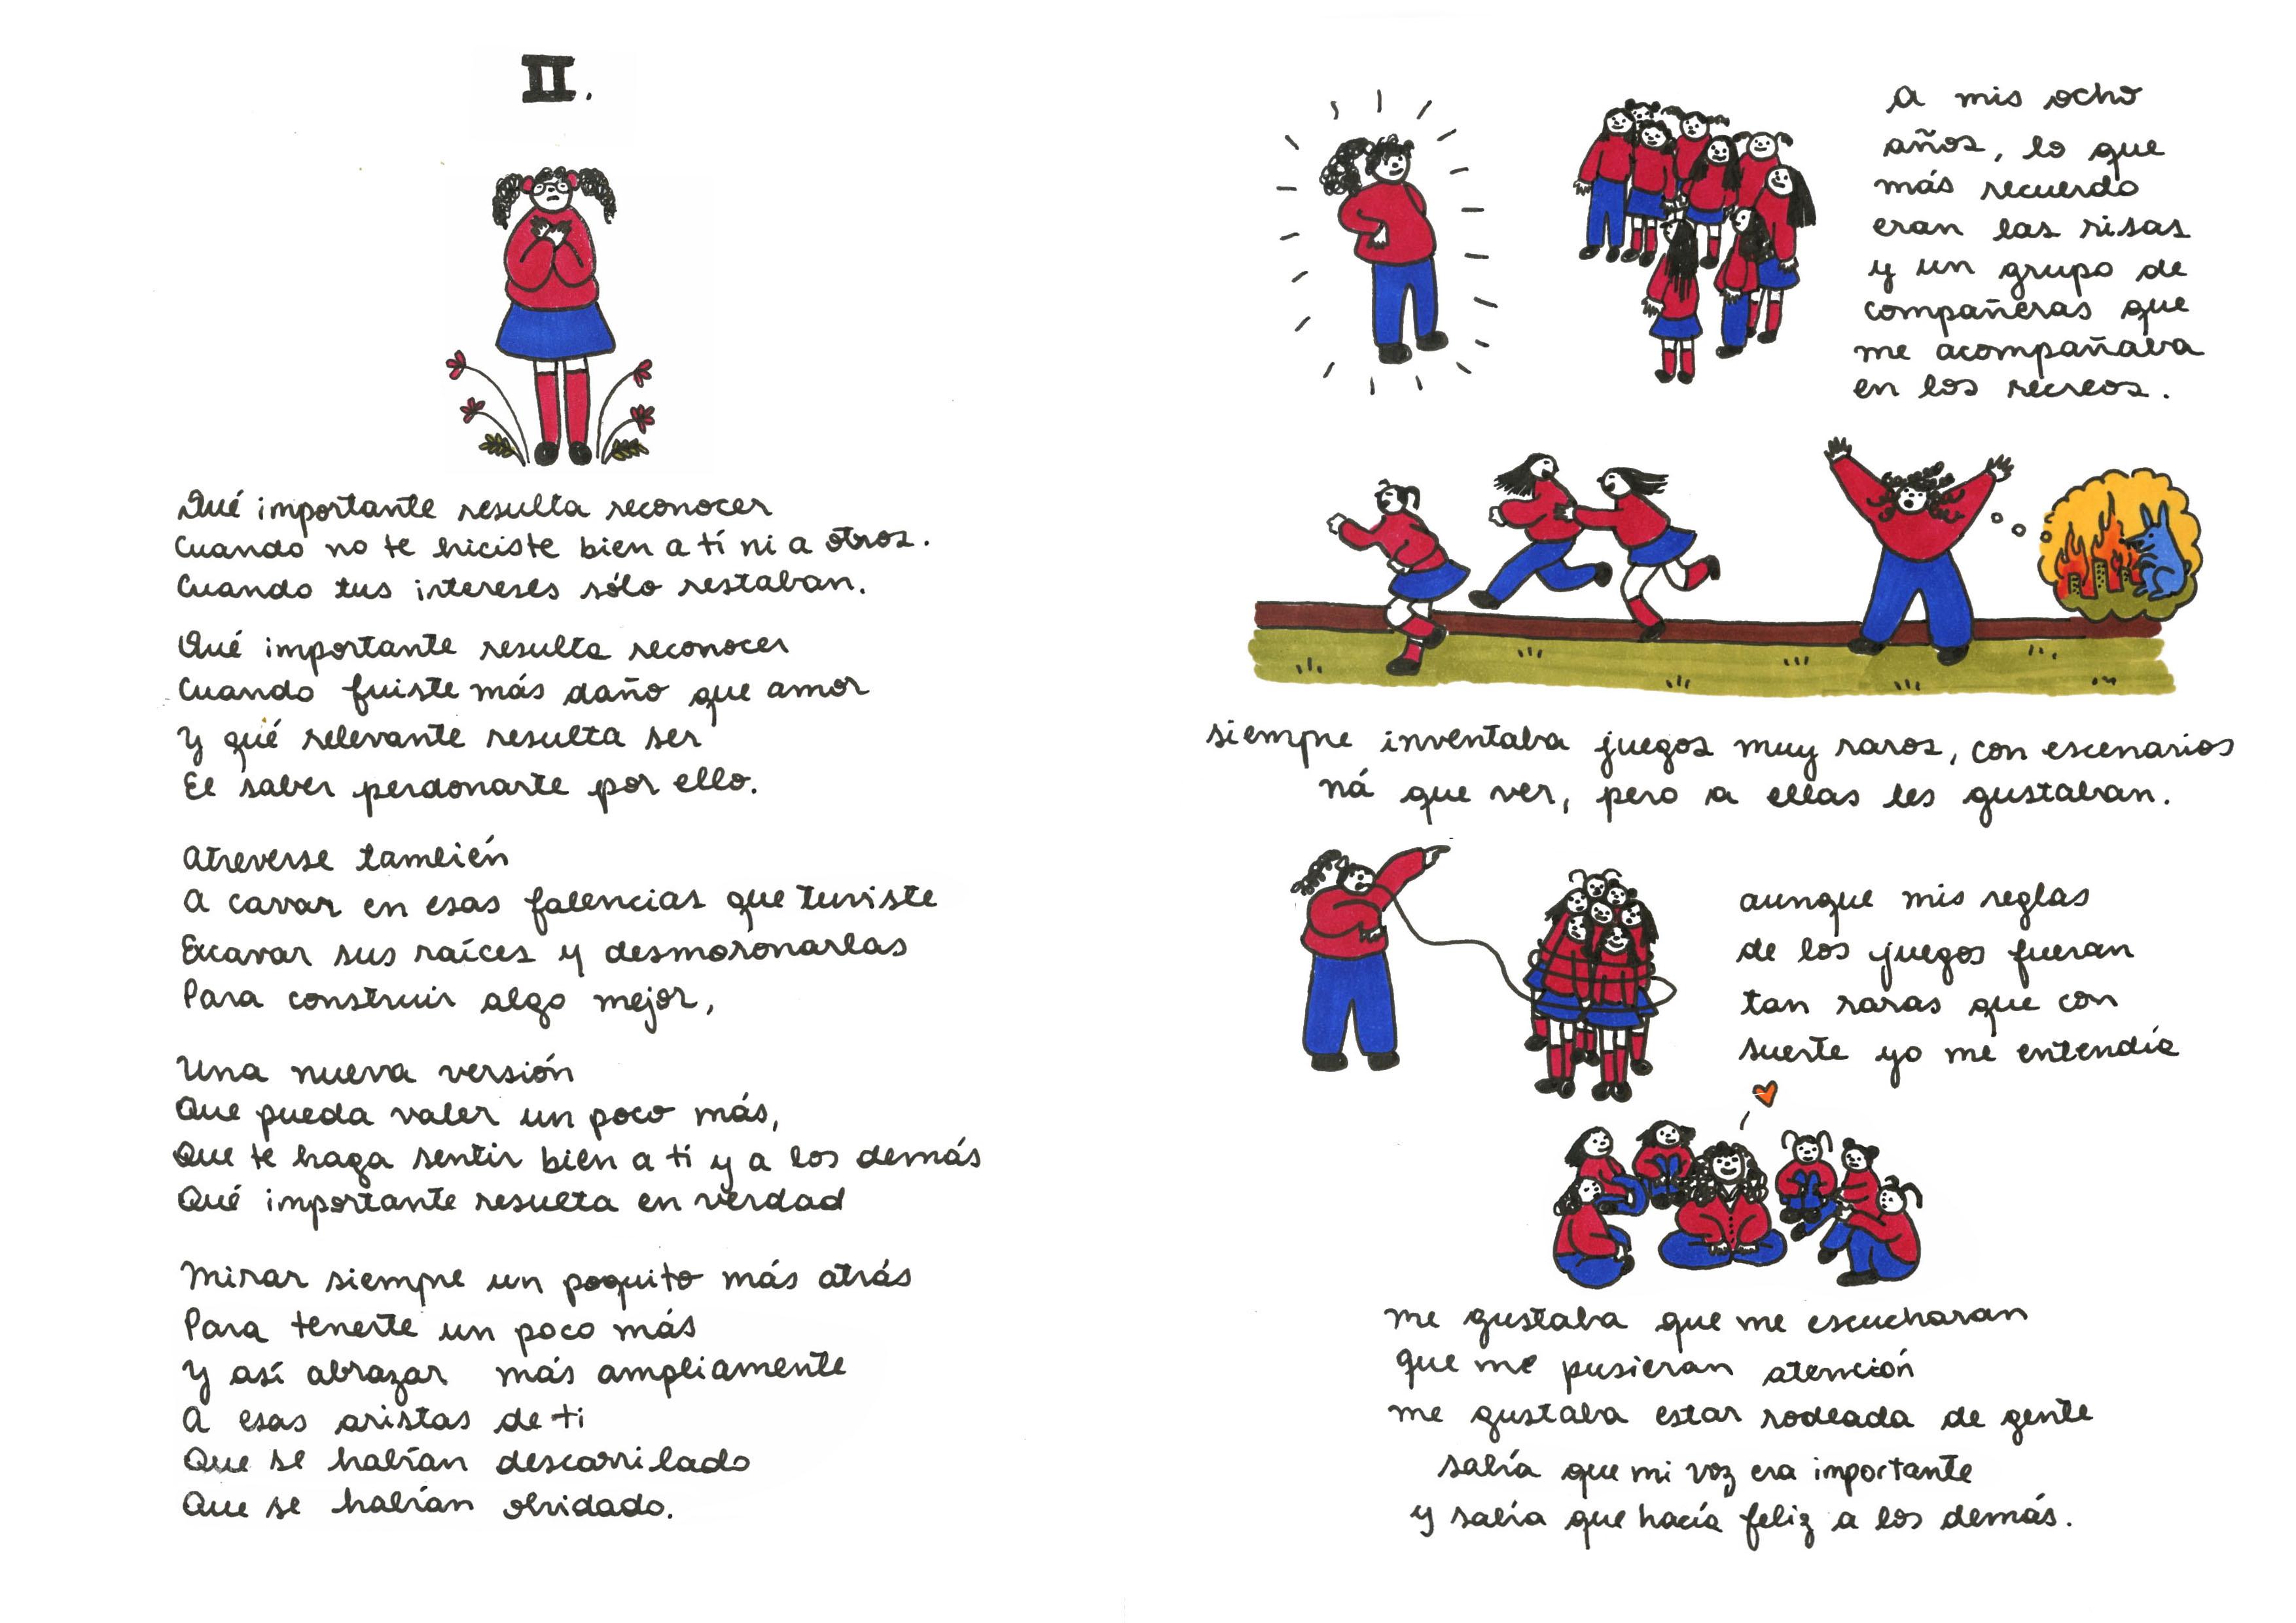 II.
Qué importante resulta reconocer
Cuando no te hiciste bien a tí ni a otros.
Cuando tus intereses sólo restaban.
Qué importante resulta reconocer
Cuando fuiste más daño que amor
Y qué relevante resulta ser
El saber perdonarte por ello.
Atreverse también
A cavar en esas falencias que tuviste
Excavar sus raíces y desmoronarlas
Para construir algo mejor,
Una nueva versión
Que pueda valer un poco más,
Que te haga sentir bien a ti y a los demás
Qué importante resulta en verdad
Mirar siempre un poquito más atrás
Para tenerte un poco más
Y así abrazar más ampliamente
A esas aristas de ti
Que se habían descarrilado
Que se habían olvidado.
a mis ocho
años, lo que
más recuerdo
eran las risas
y un grupo de
compañeras que
me acompañaba
en los recreos.
siempre inventaba juegos muy raros, con escenarios
ná que ver, pero a ellas les gustaban.
aunque mis reglas
de los juegos fueran
tan raras que con
suerte yo me entendía
me gustaba que me escucharan
que me pusieran atención
me gustaba estar rodeada de gente
sabía que mi voz era importante
y sabía que hacía feliz a los demás.